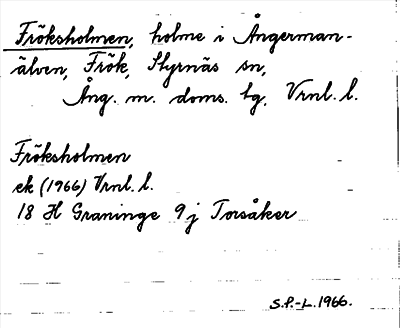 Fröksholmen, holme i Ångerman-
älven, Frök, Styrnäs sn,
Ång. m. doms. tg, Vrnl. l.
Fröksholmen
ek (1966) Vrnl. l.
18 H Graninge 9 j Torsåker
S.P.-L. 1966.